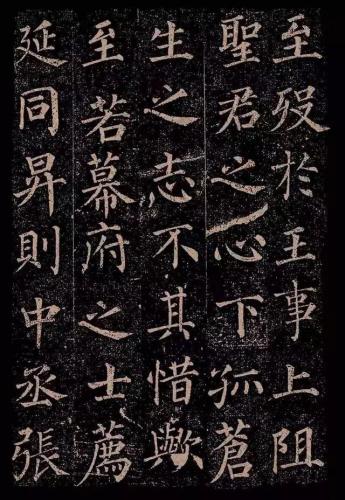 至殁於王事上阻
聖君之心下孤蒼
生之志不其惜歟
至若幕府之士薦
延同昇則中丞張